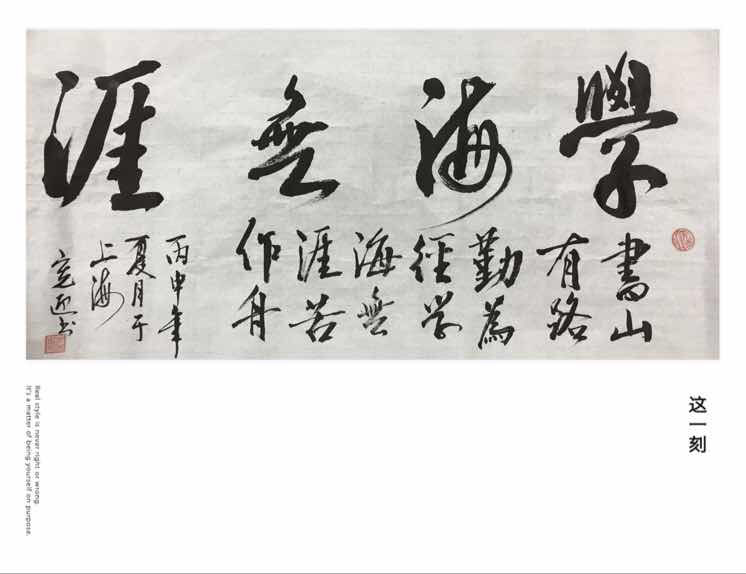 學海無涯
書山
有路
勤為
徑学
海無
涯苦
作舟
丙申年
夏月于
上海
这一刻
Real style is never right or wrong.
It's a matter of being yourself on purpose.